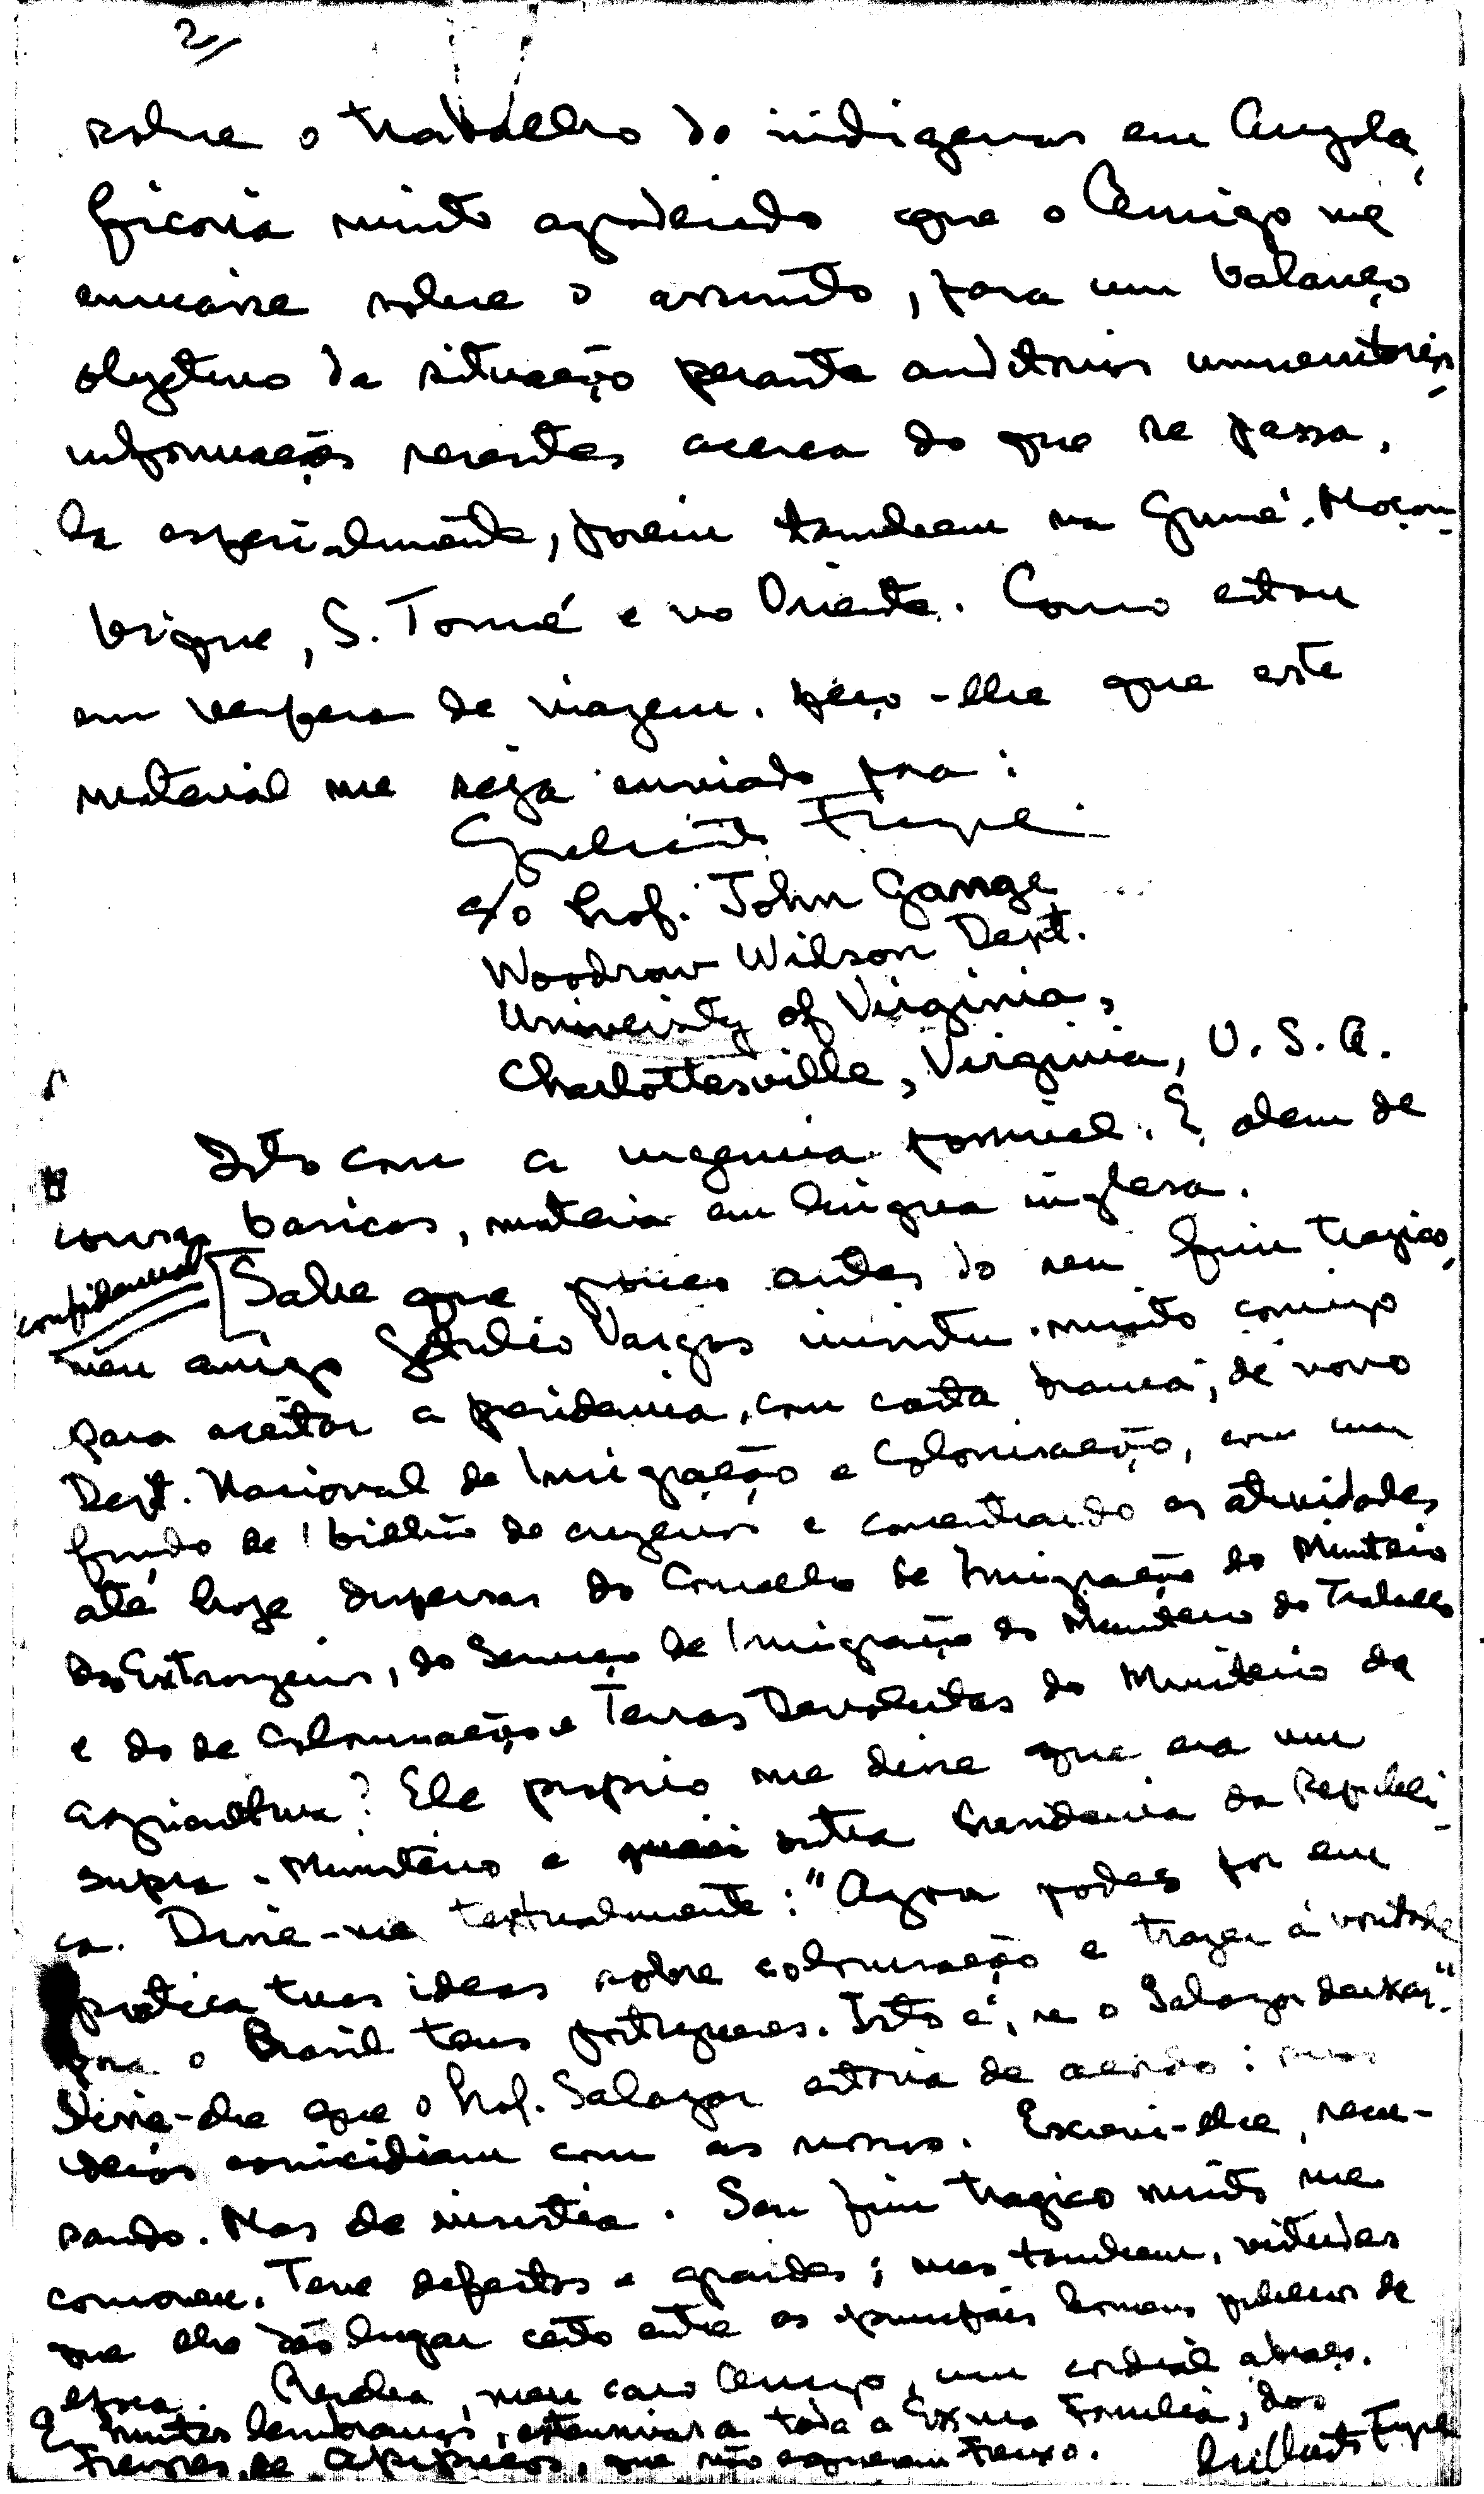 2/
sobre o trabalho do indigenas em Angola,
ficaria muito agradecido que o Amigo me
enviasse sobre o assunto, para um balanço
objetivo da situação perante auditorios universitarios
informações recentes acerca do que se passa,
la especialmente, porem tambem na Guiné, Moçam-
bique, S. Tomé e no Oriente. Como estou
em vespera de viagem, peço-lhe que este
material me seja enviado para:
Gilberto Freyre
c/o Prof. John Gange
Woodrow Wilson Dept.
University of Virginia,
Charlottesville, Virginia, U.S.A.
Isto com a urgencia possivel. E, alem de
cousas basicas, materia em lingua inglesa.
confidencial
Sabe que pouco antes do seu fim tragico,
meu amigo Getulio Vargas insistiu muito comigo
para aceitar a presidencia, com carta branca, de novo
Dept. Nacional de Imigração e Colonisação, com um
fundo de 1 bilhão de cruzeiros e concentrando as atividades
até hoje dispersas do Conselho de Imigração do Ministerio
do Extrangeiro, do Serviço de Imigração do Ministerio do Trabalho
e do de Colonisação e Terras Devolutas do Ministerio da
Agricultura? Ele proprio me disse que era um
supra-Ministerio e quasi outra Presidencia da Republi-
ca. Disse-me textualmente: "Agora podes por em
pratica tuas ideas sobre colonisação e trazer á vontade
para o Brasil teus portugueses. Isto é, se o Salazar deixar."
Disse-lhe que o Prof. Salazar estaria de acordo: suas
ideias coincidiam com as nossas. Escrevi-lhe, recu-
sando. Mas ele insistia. Seu fim tragico muito me
comoveu. Teve defeitos e grandes; mas tambem, virtudes
que lhe dão lugar certo entre os principais homens publicos de
epoca. Receba, meu caro Amigo, um cordial abraço.
E muitas lembranças, extensivas a toda a Exma Familia, dos
Freyres, de Apipucos, que não esquecem
Gilberto Freyre